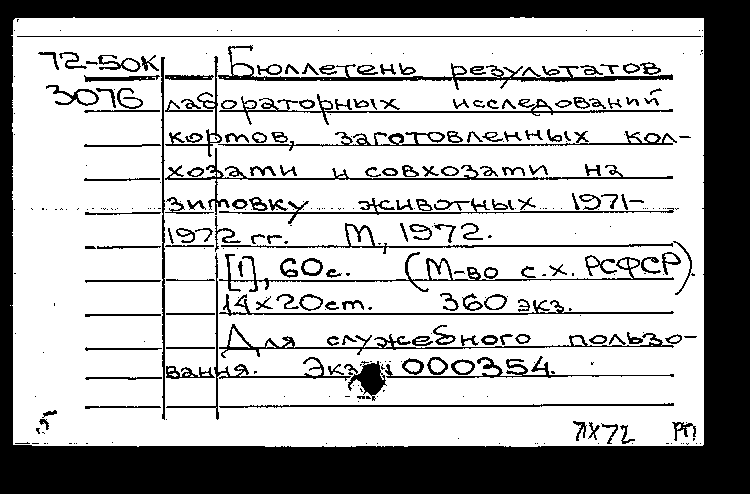 72-50К Бюллетень результатов
3076 лабораторных исследований
кормов, заготовленных кол-
хозами и совхозами на
зимовку животных 1971-
1972 гг. М., 1972.
[1], 60с. (М-во с.х. РСФСР).
14х20см. 360 экз.
Для служебного пользо-
вания. Экз. 000354.